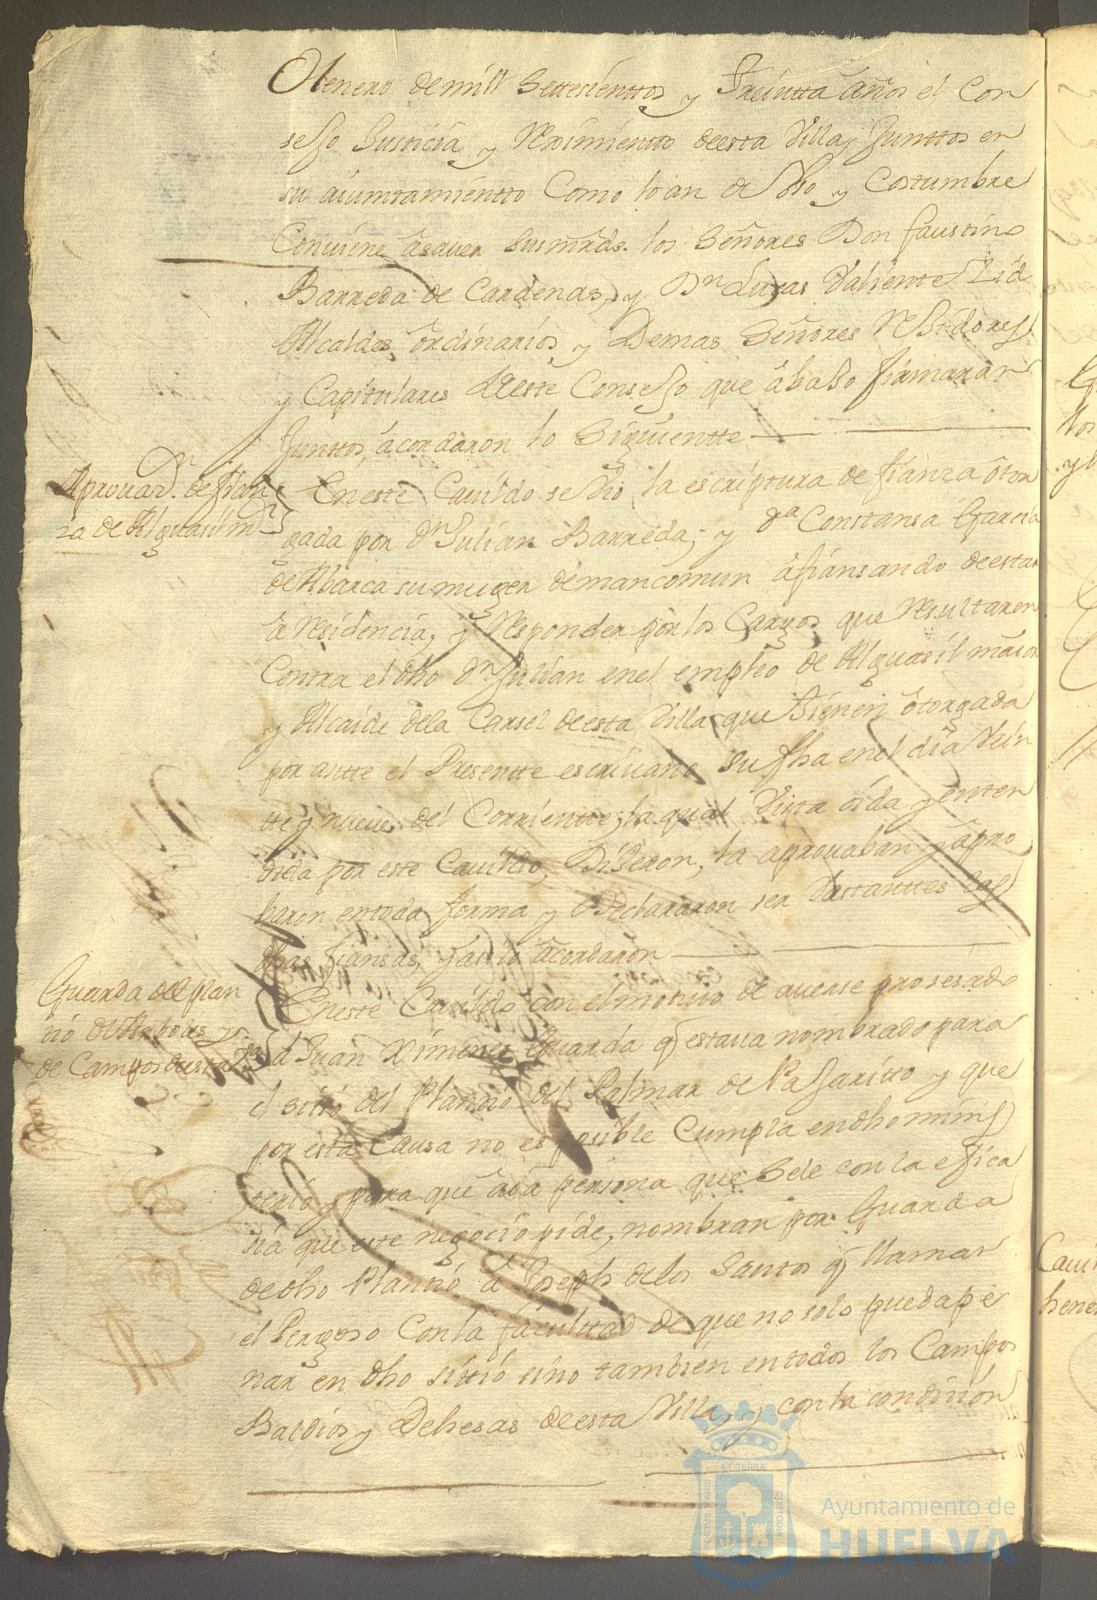 de henero de mill settesienttos y Treintta años el Con
sejo Justicia y Reximiento deesta Villa, Junttos en
su aiuntamientto Como lo an de dho y Costumbre
Conviene âsaver susmrds. los Señores Don faustino
Barreda de Cardenas, y Dn Lucas Valiente
Alcaldes, ôrdinarios, y Demas Señores Rejidores
y Capitulares deeste Consejo que âbajo firmaran
Junttos, acordaron lo Siguientte
Aprovacn. de fian
za de Alguasil mr
Eneste Cavildo se vio la escriptura de fianza ôtor
gada por Dn Julian Barreda; y Da Constansa Garcia
de Abarca su muger demancomun âfiansando deestar
â residencia, y Responder por los Cargos que resultaren
Contra el dho Dn Julian enel empleo de Alguasil maior
y Alcaide dela Carsel deesta Villa que tienen ôtorgada
por antte el Presentte escrivano su fha enel dia Vein
tte y nueve del Corrientte, la qual Vista oida y enten
dida por este Cavildo, Dijeron, la aprovaban y apro
baron entoda forma y Declararon ser Vastanttes las
dhas fiansas, y asi lo acordaron
Guarda del plan
de Campos deesta Va
Eneste Cavildo con el motivo de averse prosesado
â Juan Ximenes Guarda q estava nombrado para
el sitio del Plantio del Palmar de Pajaritto y que
por esta Causa no es posible Cumpla endho minis
terio y para que aia persona que Sele con la efica
sia que este negocio pide, nombran por Guarda
de dho Plantio â Joseph delos Santos q llaman
el Con la faculttad de que no solo pueda pe
nar en dho sittio sino tambien entodos los Campos
Baldios y Dehesas deesta Villa, y con la condision
Ayuntamiento de
HUELVA